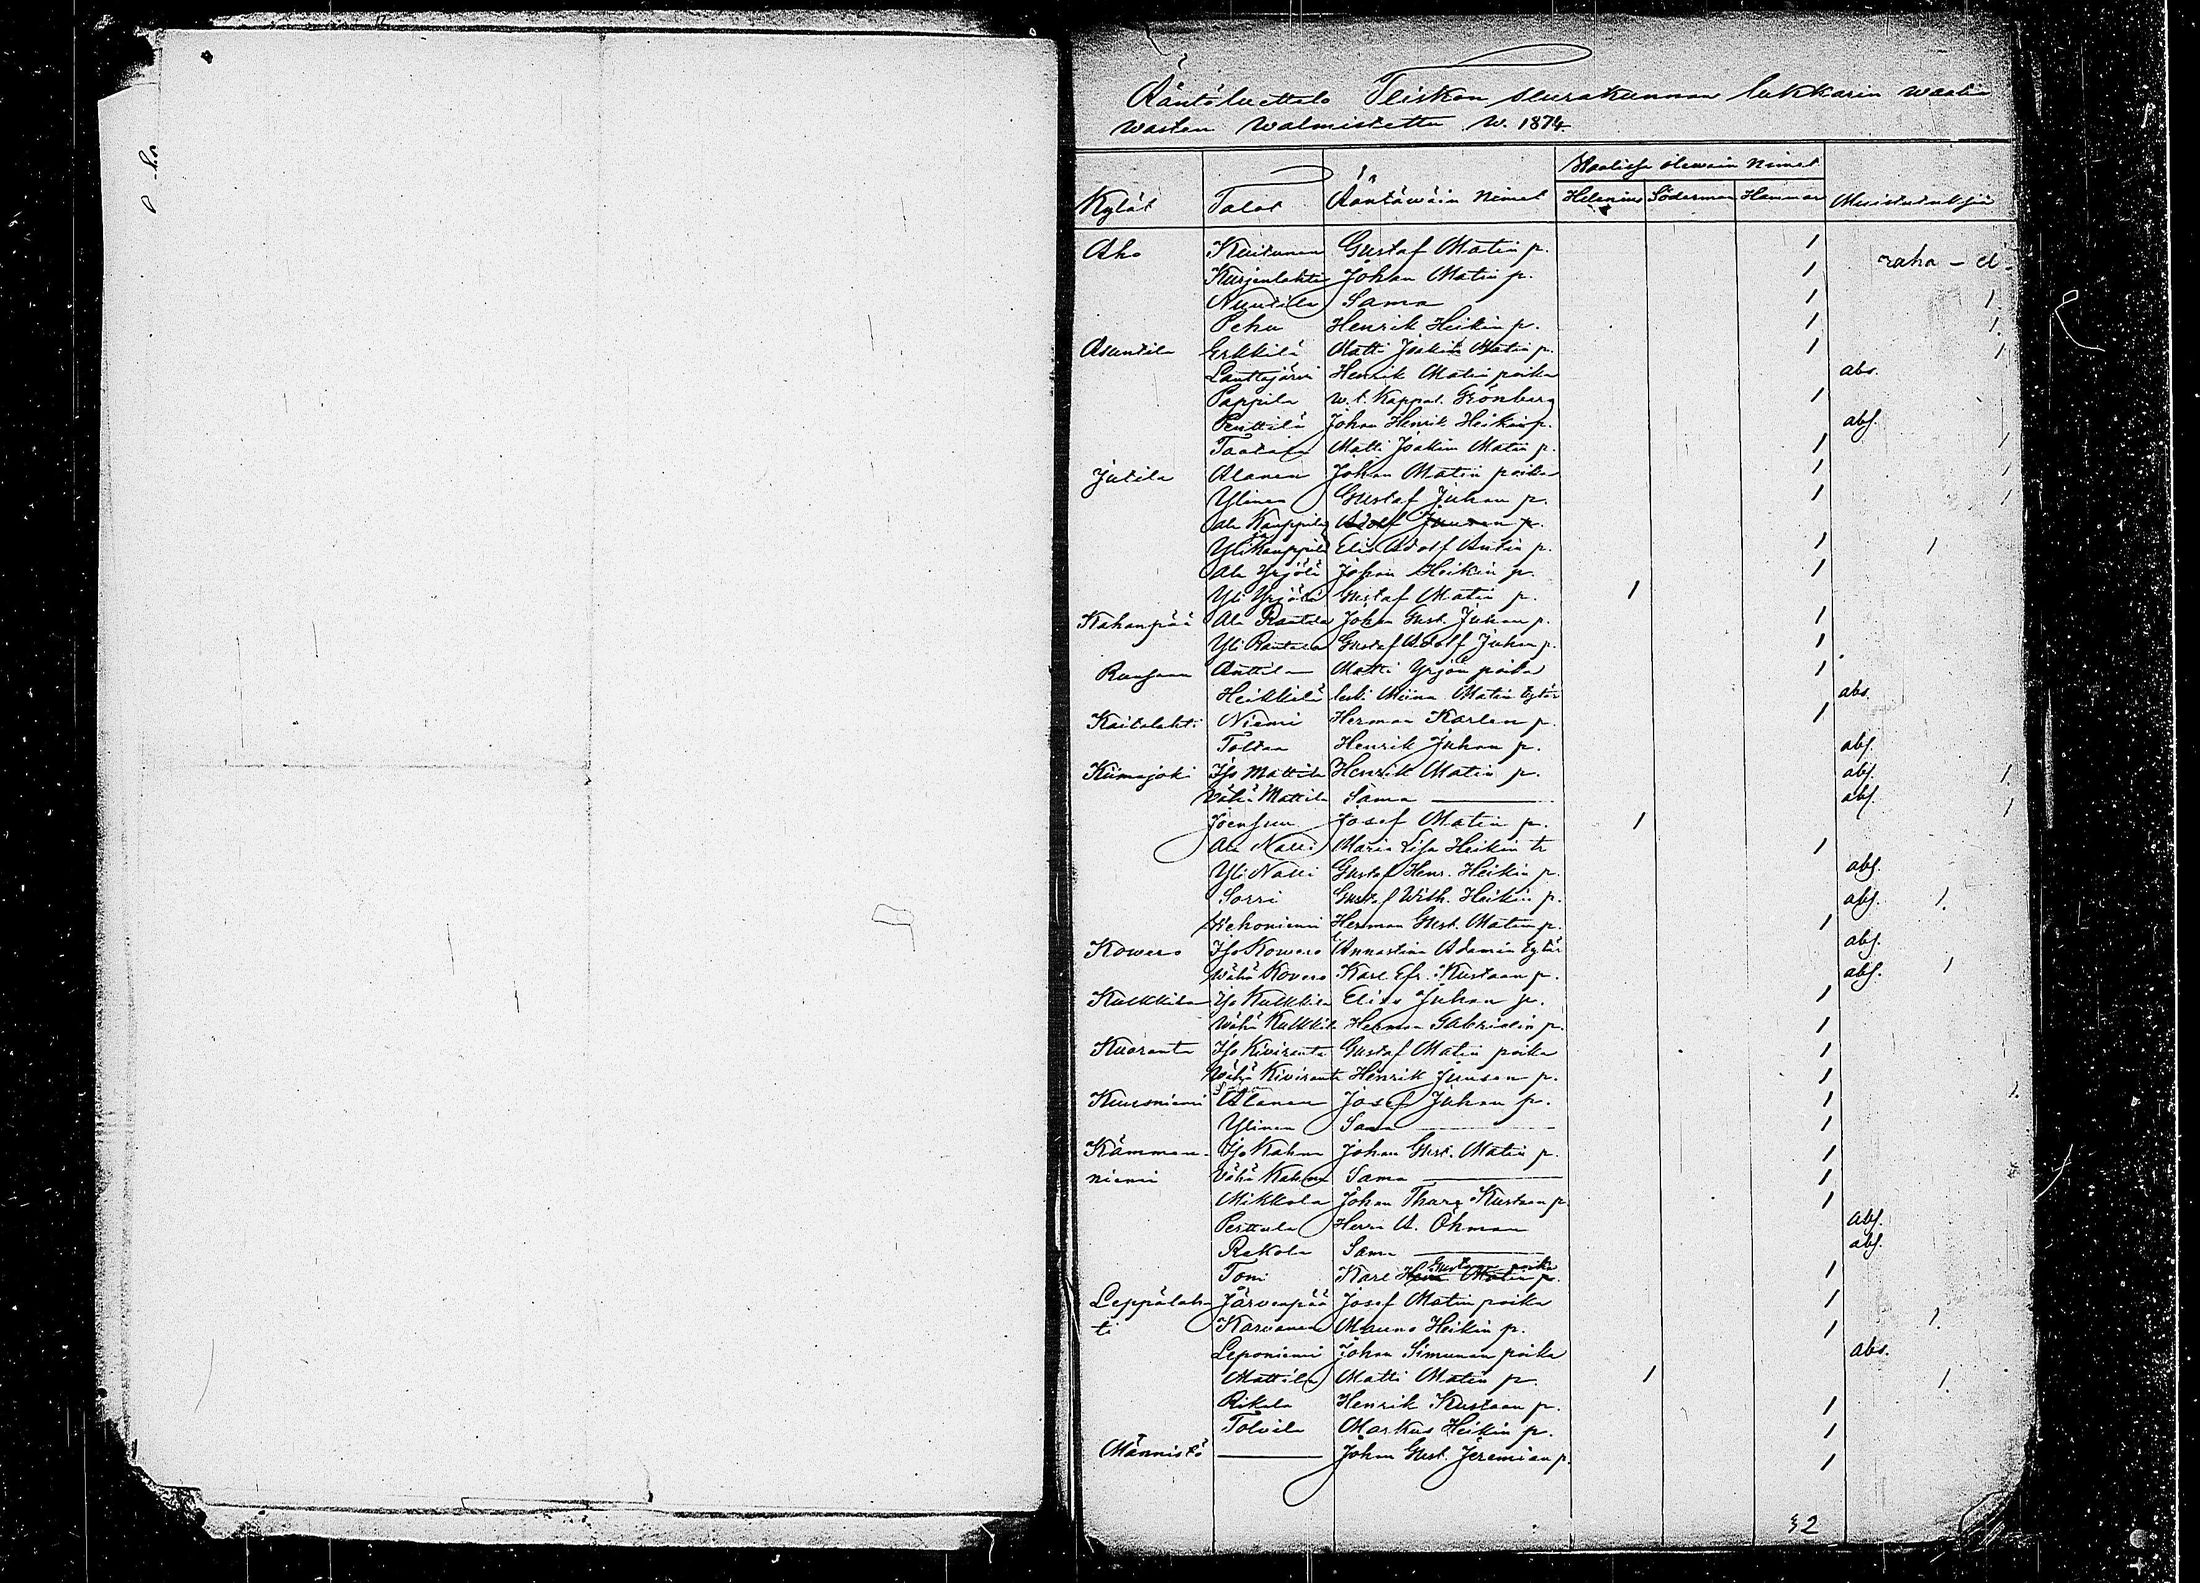 Ääntöluettelo Teiskon seurakunnan lukkarin waalia
warten walmistettu w. 1874
Waalissa olewain Nimet
Kylät Talot Ääntäwäin Nimet Helenius Söderman Hammar Muistutuksia
Aho Kuitunen Gustaf Matin p. 1 raha-ä-
Kurjenlahti Johan Matin p. 1
Nuutila Sama 1 1.
Pehu Henrik Heikin p. 1 1.
Asuntila Erkkilä Matti Joakim Matin p. 1 1
Lanttajärvi Henrik Matin poika abs.
Pappila w.t. Kappal. Grönberg 1
Penttilä Johan Henrik Heikin p. abs.
Taatala Matti Joakim Matin p. 1 1
Jutila Alanen Johan Matin poika 1 1
Ylinen Gustaf Juhan p. 1 1
Ala Kauppila Adolf Juusen p.
ja
Yli Kauppila Elis Adolf Antin p. 1 1
Ala Yrjölä Johan Heikin p. 1
Yli Yrjölä Gustaf Matin p. 1
Kahanpää Ala Rantala Johan Gust. Juhan p. 1
Yli Rantala Gustaf Adolf Juhan p. 1
Anttila Matti Yrjön poika 1
Heikkilä leski Miina Matin tytär abs.
Kaitalahti Niemi Herman Karlen p. 1
Toltaa Henrik Juhan p. abs.
Kiimajoki Iso Mattila Henrik Matin p. abs. 1.
Vähä Mattila Sama abs. 1
Joensuu Josef Matin p. 1
Ala Nalli Maria Lisa Heikin tr 1
Yli Nalli Gustaf Henr. Heikin p. abs.
Sorri Gustaf Wilh. Heikin p. abs. 1.
Kehoniemi Herman Gust. Matin p. 1
Kowero Iso Kowero Annastina Adamin tytär abs.
Wähä Kovero Karl Efr. Kustaan p. abs. 1
Kulkkila Iso Kulkkila Elias Juhan p. 1
Wähä Kulkkila Herman Gabrielin p. 1
Kuoranta Iso Kiviranta Gustaf Matin poika 1
Wähä Kiviranta Henrik Juusen p. 1
Kuusniemi Alanen Josef Juhan p. 1 1.
Ylinen Sama 1
Kämmen- Iso Kahma Johan Gust. Matin p. 1
niemi Vähä Kahma Sama 1
Mikkola Johan Kustaan p. 1
Perttula Herra A. Öhman abs.
Rekola Sama abs.
Gustaan poika
Toni Karl Hein Matin p. 1
Leppälah- Järvenpää Josef Matin poika 1
ti Karvanen Mauno Heikin p. 1 1.
Leponiemi Johan Simunan poika abs.
Mattila Matti Matin p. 1 1.
Rikala Henrik Kustaan p. 1
Tolvila Markus Heikin p. 1
Männistö Johan Gust. Jeremian p. 1
32